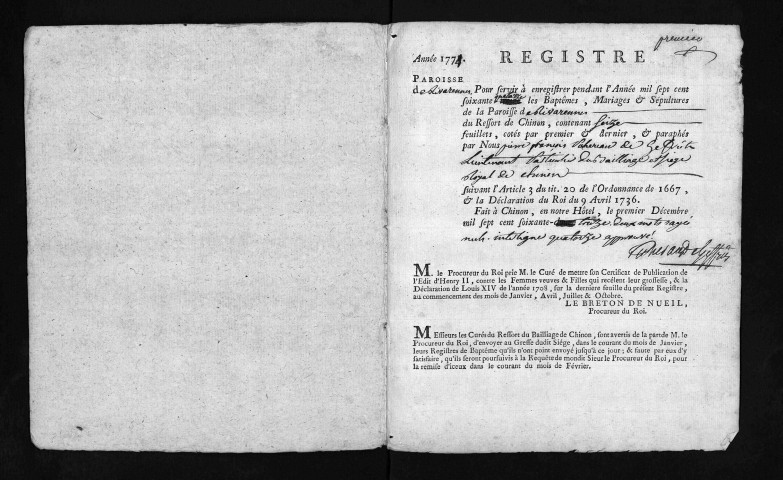 premier
Année 1774. REGISTRE
PAROISSE
de Rivarennes Pour servir à enregistrer pendant l'Année mil sept cent
soixante quatorze les Baptêmes, Mariages & Sépultures
de la Paroisse de Rivarennes
du Ressort de Chinon, contenant seize
feuillets, cotés par premier & dernier, & paraphés
par Nous pierre françois
Lieutenant particulier du Bailliage et siege
Royal de chinon
suivant l'Article 3 du tit. 20 de l'Ordonnance de 1667,
& la Déclaration du Roi du 9 Avril 1736.
Fait à Chinon, en notre Hôtel, le premier Décembre
mil sept cent soixante- treize deux mots rayés
nuls. interligne quatorze approuvé
M. le Procureur du Roi prie M. le Curé de mettre son Certificat de Publication de
l'Edit d'Henry II, contre les Femmes veuves & Filles qui recélent leur grossesse, & la
Déclaration de Louis XIV de l'année 1708, sur la derniere feuille du présent Registre,
au commencement des mois de Janvier, Avril, Juillet & Octobre.
LE BRETON DE NUEIL,
Procureur du Roi.
MEssieurs les Curés du Ressort du Bailliage de Chinon, sont avertis de la part de M. le
Procureur du Roi, d'envoyer au Greffe dudit Siége, dans le courant du mois de Janvier,
leurs Registres de Baptême qu'ils n'ont point envoyé jusqu'à ce jour; & faute par eux d'y
satisfaire, qu'ils seront poursuivis à la Requête de mondit Sieur le Procureur du Roi, pour
la remise d'iceux dans le courant du mois de Février.